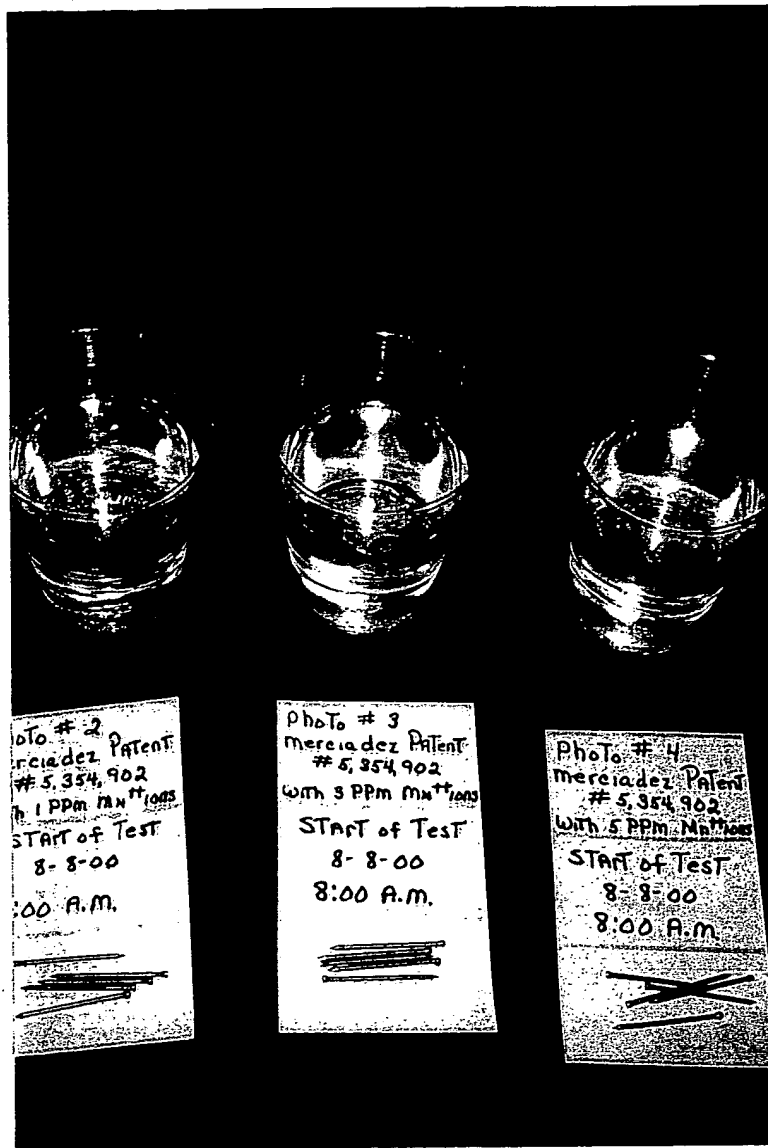 oTo # 2
erciadez PATenT
# 5,354,902
h 1 PPm Mn++ ions
START of TesT
8-8-00
:00 A.M.
PhoTo # 3
merciadez PATenT
# 5,354,902
with 3 PPm Mn++ ions
STArT of TesT
8-8-00
8:00 A.M.
PhoTo # 4
merciadez PATenT
# 5,354,902
With 5 PPm Mn++ ions
STArT of TesT
8-8-00
8:00 A.M.